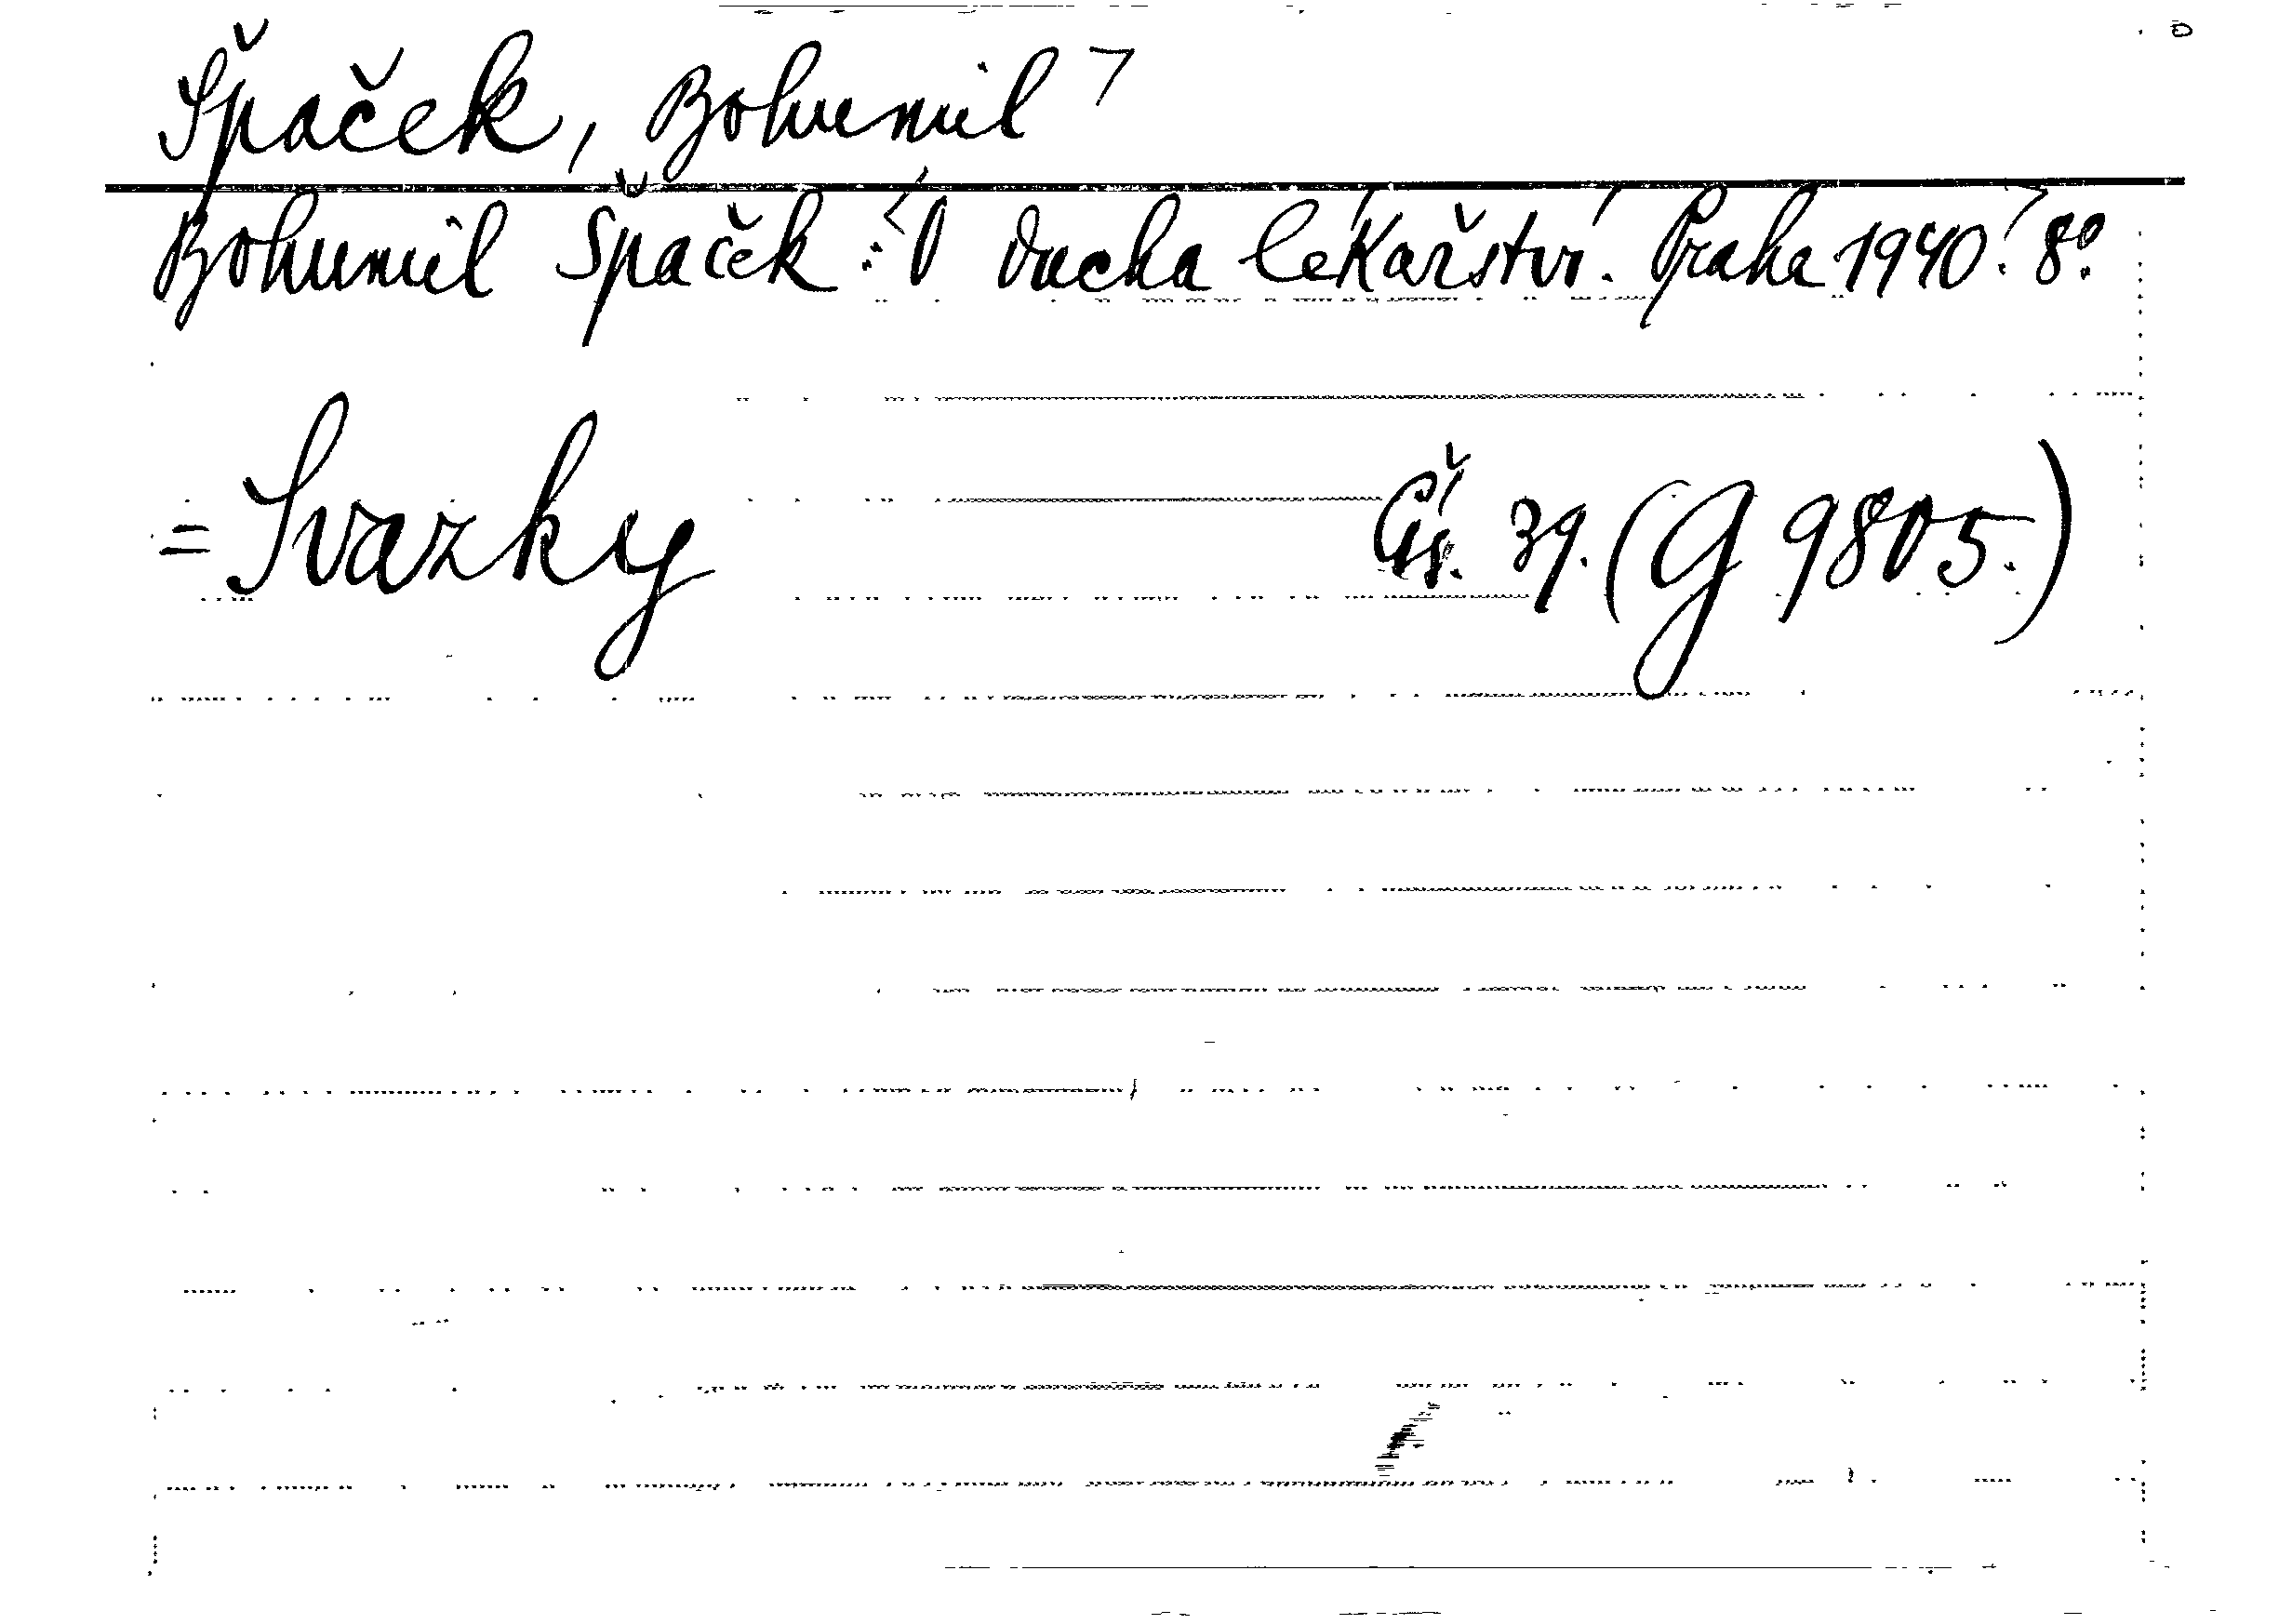 Špaček, Bohumil
Bohumil Špaček: O ducha lékařství. Praha 1940. 8°.
= Svazky Čís. 39. (G 9805.)